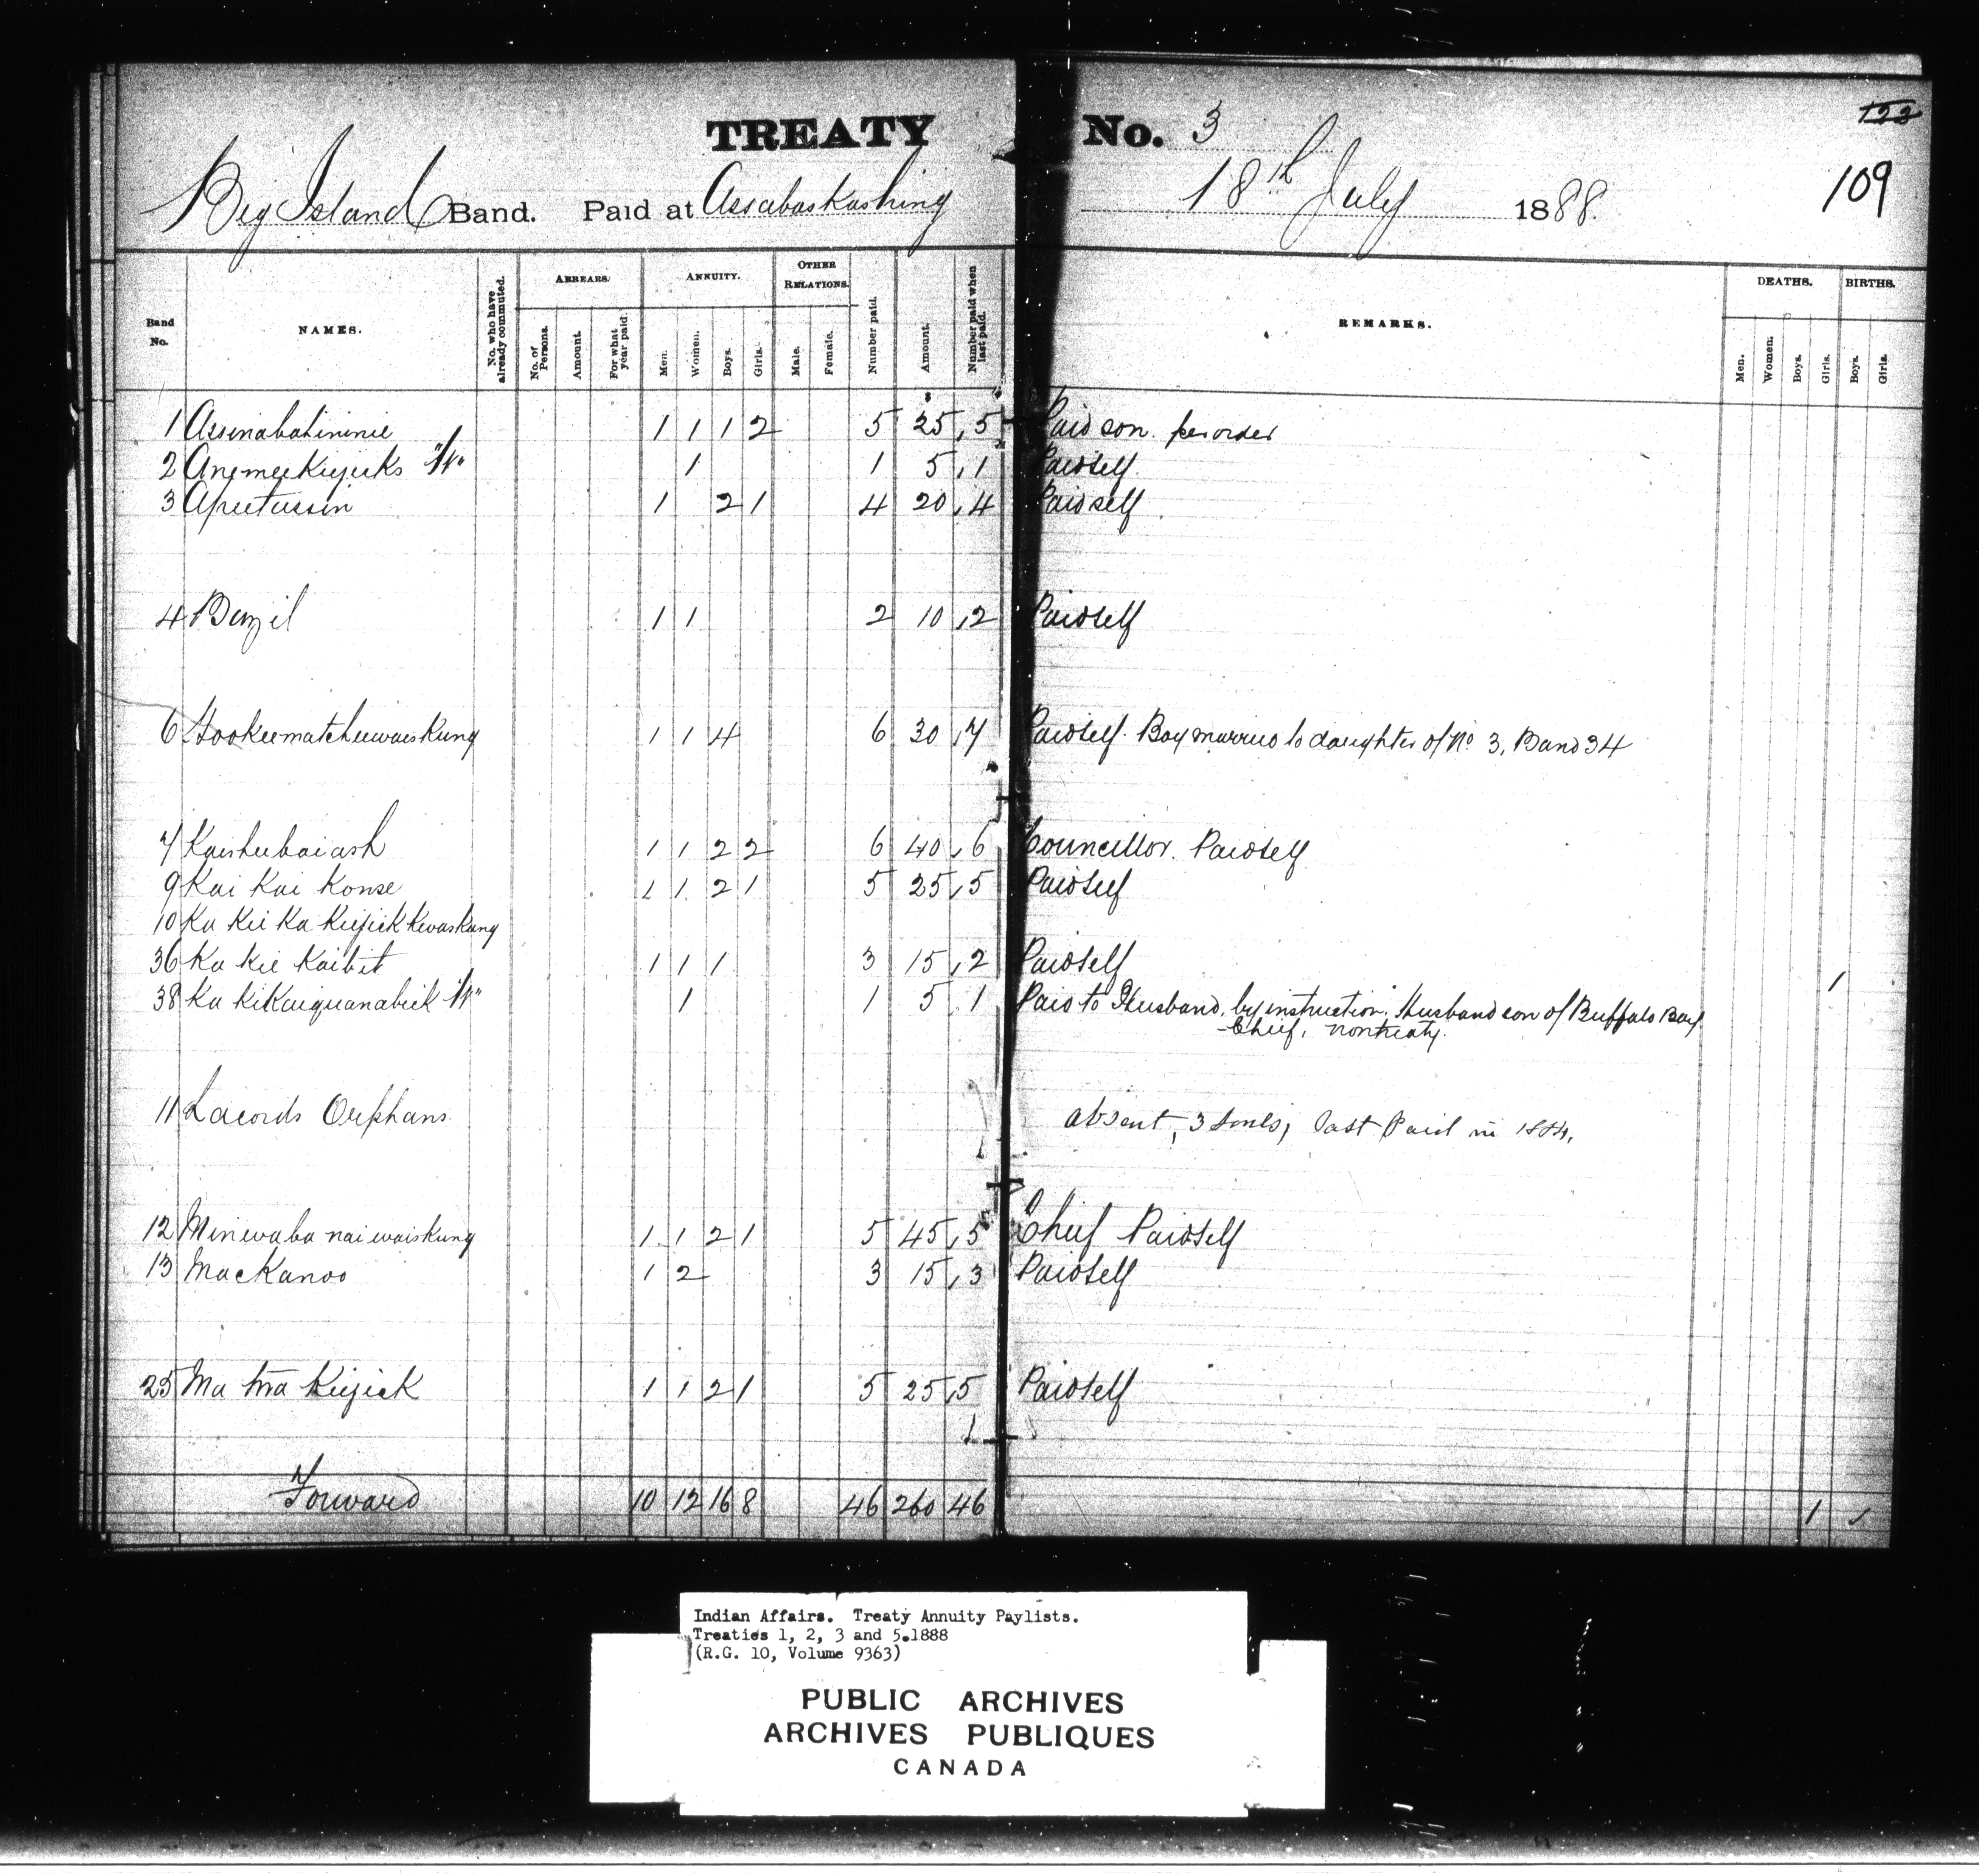 TREATY No. 3
123
109
Big Island Band. Paid at Assabaskashing 18th July 1888
Band No. NAMES. No. who have already commuted. ARREARS. No. of Persons. Amount. For what year paid. ANNUITY. Men. Women. Boys. Girls. OTHER RELATIONS. Male. Female. Number paid. Amount. Number paid when last paid. REMARKS. DEATHS. Men. Women. Boys. Girls. BIRTHS. Boys. Girls.
1 Assinabahininie 1 1 1 2 5 25 5 Paid son. per order
2 Anemeekijicks "W" 1 1 5 1 Paid self
3 Apeetussin 1 2 1 4 20 4 Paid self
4 Bazil 1 1 2 10 2 Paid self
6 Hookeematcheewaiskung 1 1 4 6 30 7 Paid self. Boy married to daughter of No 3, Band 34
7 Kaisheebaiash 1 1 2 2 6 40 6 Councillor. Paid self
9 Kai Kai Konse 1 1 2 1 5 25 5 Paid self
10 Ka Kee Ka Keejick Kewaskung
36 Ka Kee Kaibit 1 1 1 3 15 2 Paid self 1
38 Ka KiKaiguanabeek "W" 1 1 5 1 Paid to Husband, by instruction. Husband son of Buffalo Bay
Chief, nontreaty.
11 Lacords Orphans absent, 3 souls, last Paid in 1884.
12 Minewabanaiwaiskung 1 1 2 1 5 45 5 Chief Paid self
13 MacKanoo 1 2 3 15 3 Paid self
25 Ma twa Keejick 1 1 2 1 5 25 5 Paid self
Forward 10 12 16 8 46 260 46 1
Indian Affairs. Treaty Annuity Paylists.
Treaties 1, 2, 3 and 5.1888
(R.G. 10, Volume 9363)
PUBLIC ARCHIVES
ARCHIVES PUBLIQUES
CANADA